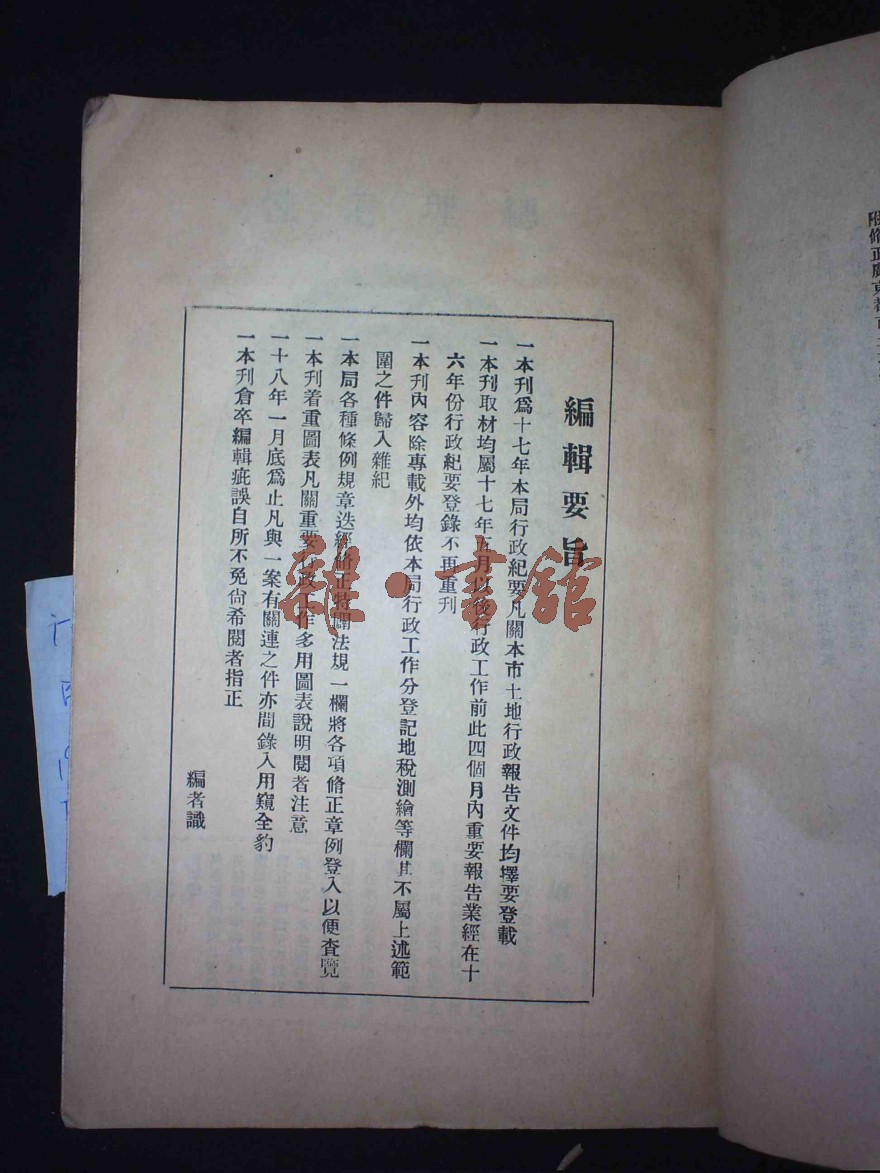 編輯要旨
一本刊爲十七年本局行政紀要凡關本市土地行政報告文件均擇要登載
一本刊取材均屬十七年五月以後行政工作前此四個月內重要報告業經在十
六年份行政紀要登錄不再重刊
一本刊內容除專載外均依本局行政工作分登記地稅測繪等欄其不屬上述範
圍之件歸入雜紀
一本局各種條例規章迭經修正特闢法規一欄將各項修正章例登入以便査覽
一本刊着重圖表凡關重要行政工作多用圖表說明閱者注意
一十八年一月底爲止凡與一案有關連之件亦間錄入用窺全豹
一本刊倉卒編輯疵誤自所不免尙希閱者指正
編者識
雜·書館